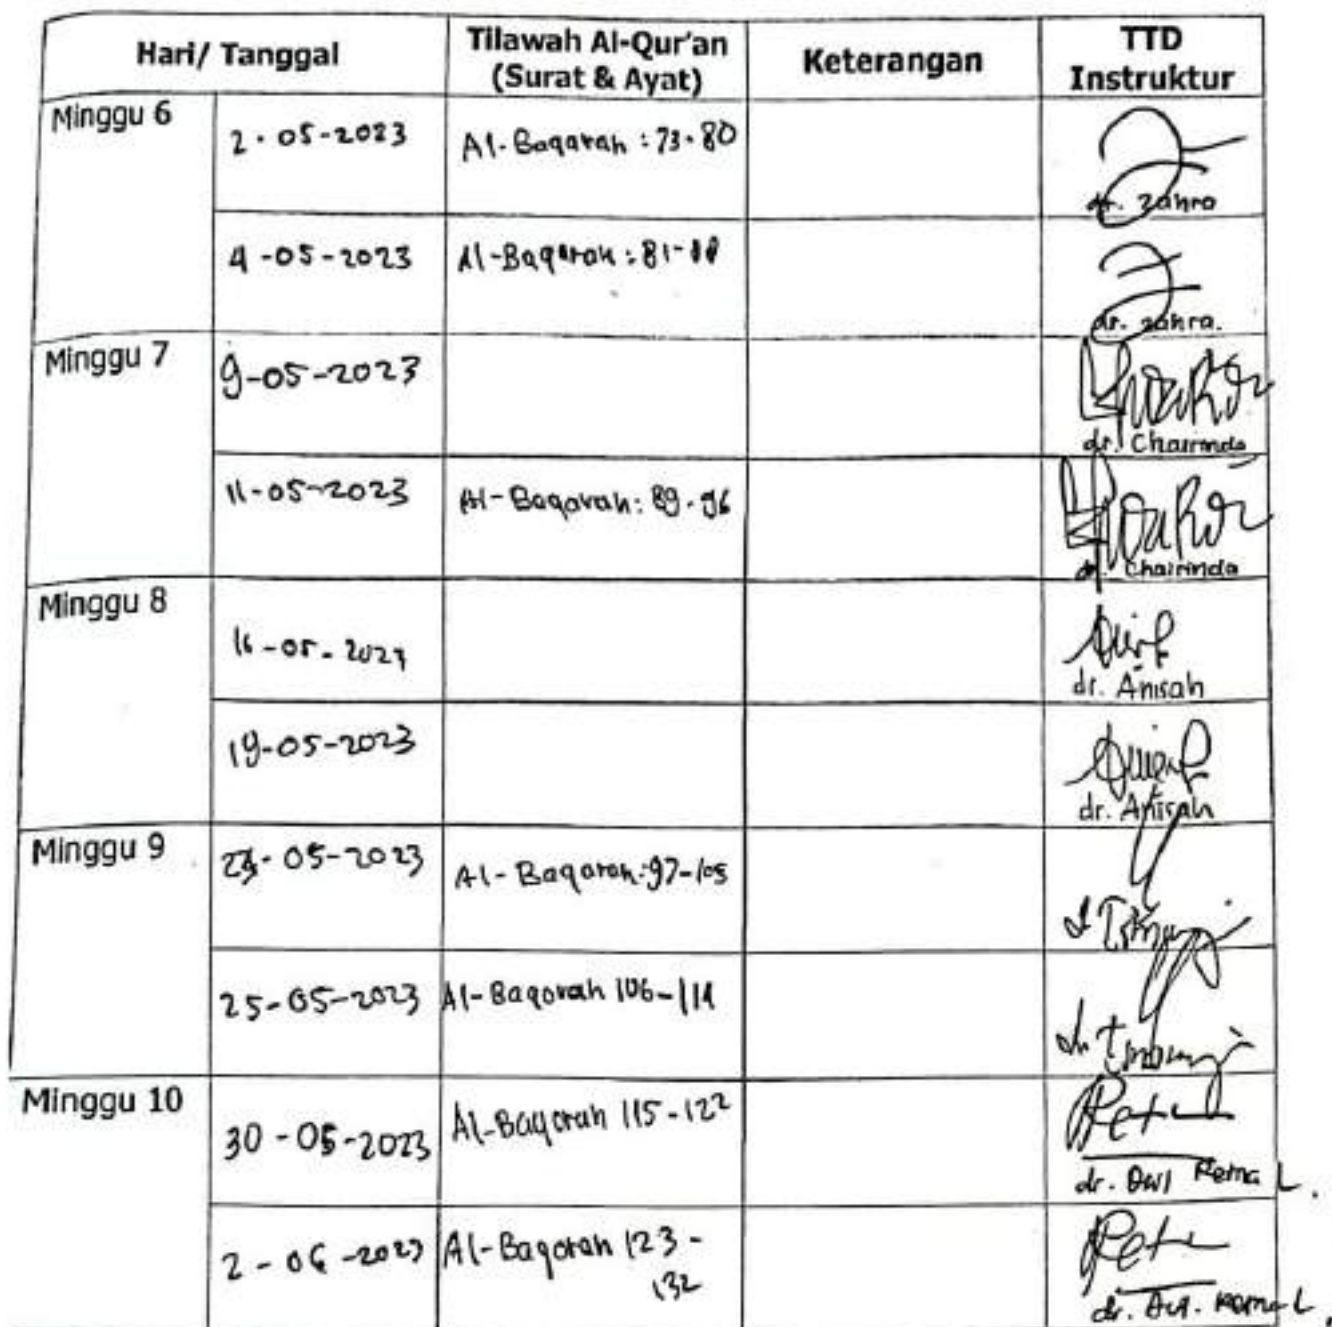 Hari/ Tanggal
Tilawah Al-Qur'an
(Surat & Ayat)
Keterangan
TTD
Instruktur
Minggu 6
2-05-2023
Al-Baqarah : 73-80
dr. Zahra
4-05-2023
Al-Baqarah : 81-88
dr. Zahra.
Minggu 7
9-05-2023
dr. Chairinda
11-05-2023
Al-Baqarah: 89-96
dr. Chairinda
Minggu 8
16-05-2023
dr. Anisah
19-05-2023
dr. Anisah
Minggu 9
05-2023
Al-Baqarah: 97-105
25-05-2023
Al-Baqarah 106-114
Minggu 10
30-05-2023
Al-Baqarah 115-122
dr. Dwi Rema L.
2-06-2023
Al-Baqarah 123-
132
dr. Dwi. Rema L.